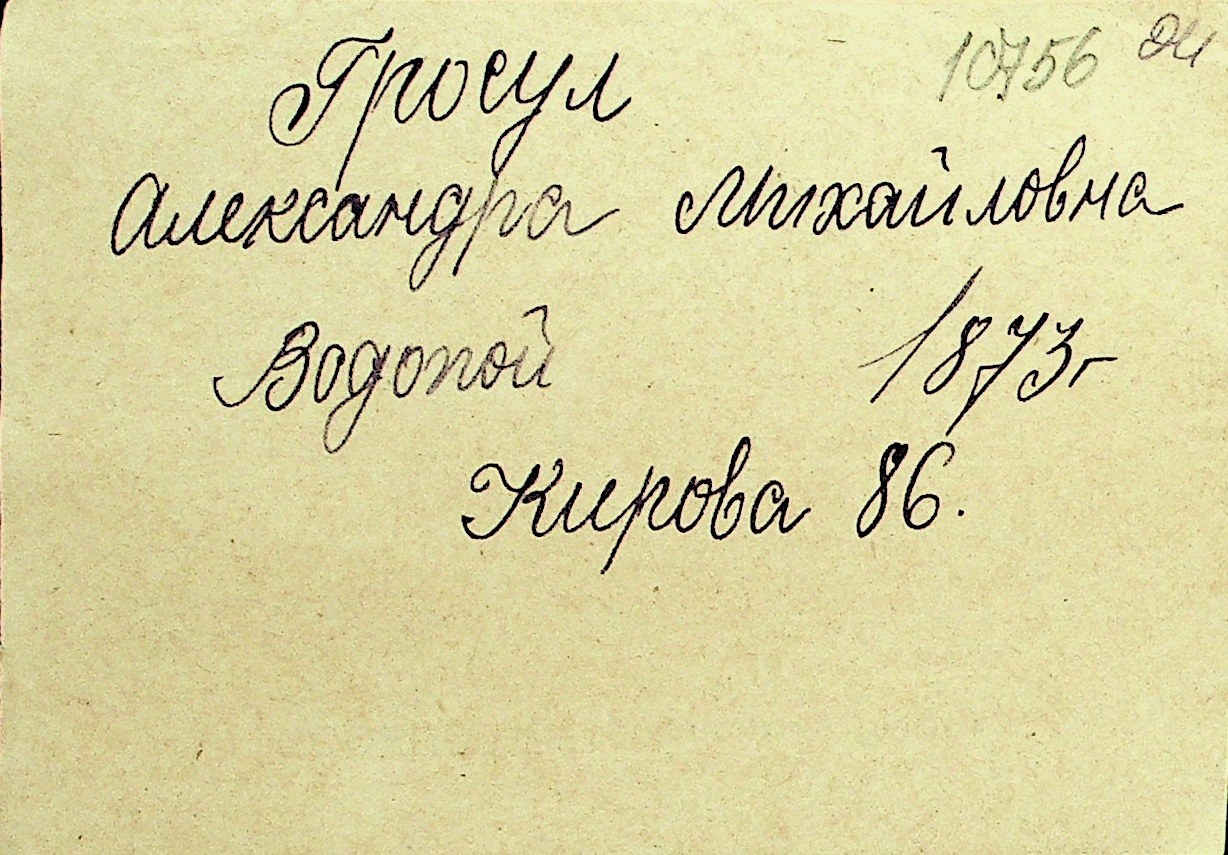 10756
Гросул
Александра Михайловна
Водопой 1873г
Кирова 86.